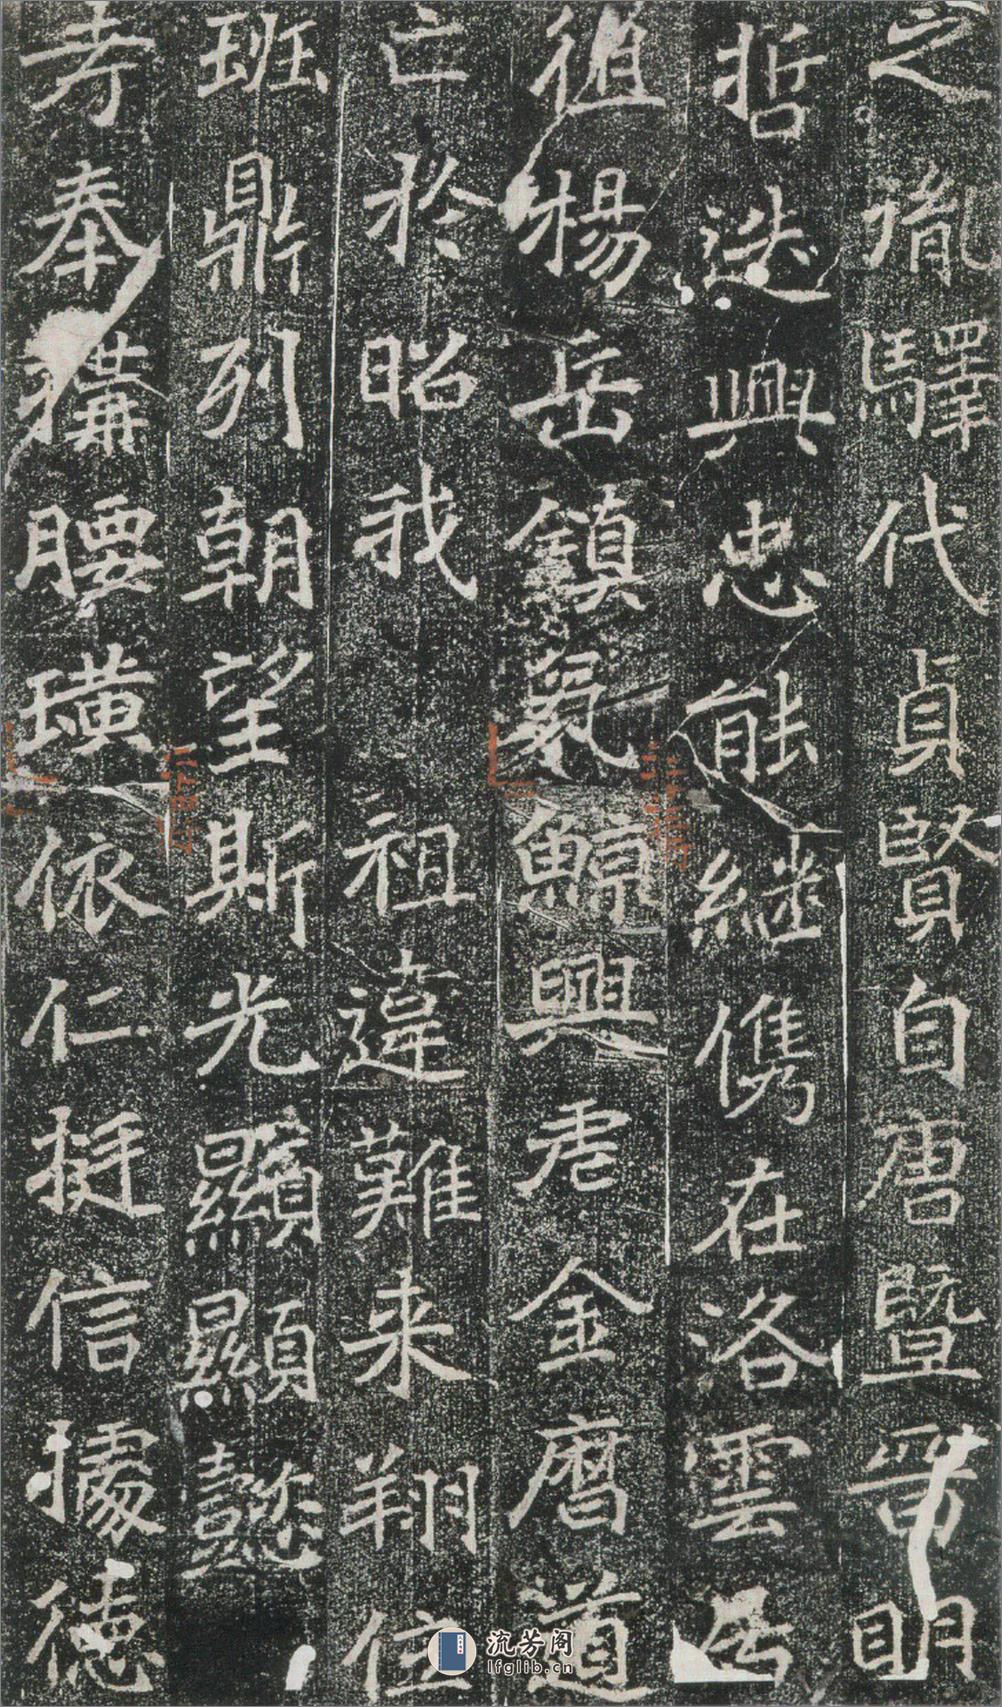 之胤驛代貞賢自唐暨晉明
哲迭興忠能継儁在洛雲居
徂楊岳鎮鯨興虐金磨道
亡於昭我祖違難来翔位
班鼎列朝望斯光顯顯懿
考奉構腰璜依仁挺信據德
流芳阁
lfglib.cn